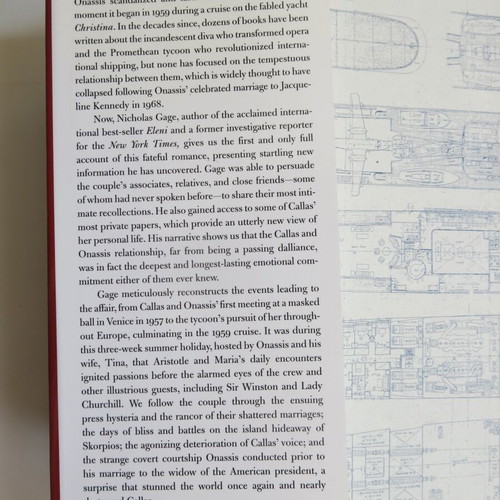 Onassis scandalized and
moment it began in 1959 during a cruise on the fabled yacht
Christina. In the decades since, dozens of books have been
written about the incandescent diva who transformed opera
and the Promethean tycoon who revolutionized interna-
tional shipping, but none has focused on the tempestuous
relationship between them, which is widely thought to have
collapsed following Onassis' celebrated marriage to Jacque-
line Kennedy in 1968.
Now, Nicholas Gage, author of the acclaimed interna-
tional best-seller Eleni and a former investigative reporter
for the New York Times, gives us the first and only full
account of this fateful romance, presenting startling new
information he has uncovered. Gage was able to persuade
the couple's associates, relatives, and close friends—some
of whom had never spoken before—to share their most inti-
mate recollections. He also gained access to some of Callas'
most private papers, which provide an utterly new view of
her personal life. His narrative shows us that the Callas and
Onassis relationship, far from being a passing dalliance,
was in fact the deepest and longest-lasting emotional com-
mitment either of them ever knew.
Gage meticulously reconstructs the events leading to
the affair, from Callas and Onassis' first meeting at a masked
ball in Venice in 1957 to the tycoon's pursuit of her through-
out Europe, culminating in the 1959 cruise. It was during
this three-week summer holiday, hosted by Onassis and his
wife, Tina, that Aristotle and Maria's daily encounters
ignited passions before the alarmed eyes of the crew and
other illustrious guests, including Sir Winston and Lady
Churchill. We follow the couple through the ensuing
press hysteria and the rancor of their shattered marriages;
the days of bliss and battles on the island hideaway of
Skorpios; the agonizing deterioration of Callas' voice; and
the strange covert courtship Onassis conducted prior to
his marriage to the widow of the American president, a
surprise that stunned the world once again and nearly